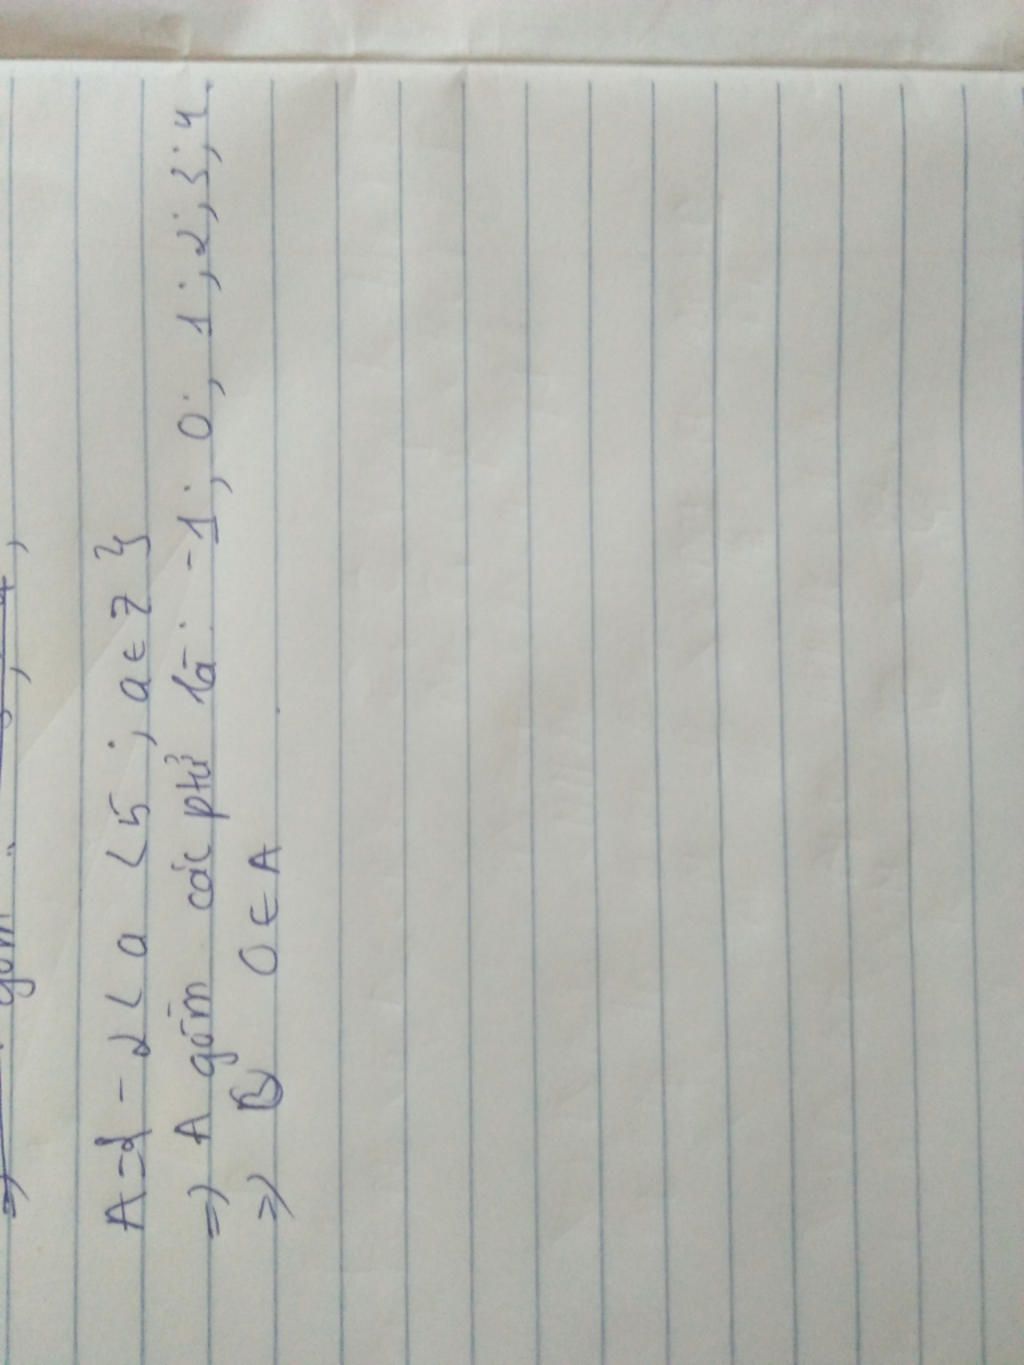 =) gồm
A={-2<a<5; a∈Z}
=) A gồm các ptử là: -1; 0; 1; 2; 3; 4.
=) B 0∈A